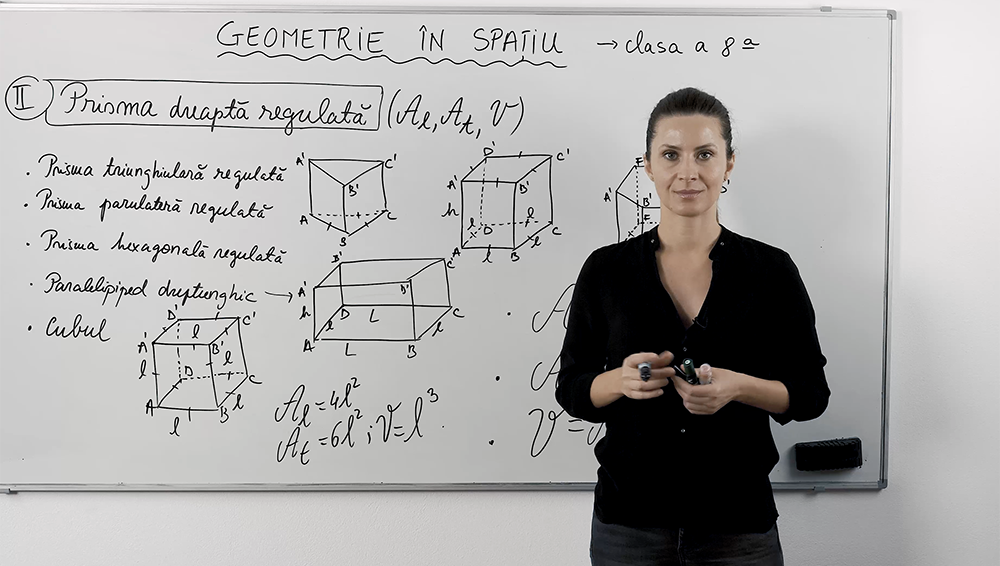 GEOMETRIE ÎN SPAȚIU → clasa a 8ª
II Prisma dreaptă regulată (Al, At, V)
. Prisma triunghiulară regulată
. Prisma parulateră regulată
. Prisma hexagonală regulată
. Paralelipiped dreptunghic →
. Cubul
A' C' B' A C B
D' C' A' B' h l D l C A l B
E' A' B' F
B' C' A' B' h D L C l A L B
D' C' l A' B' l l D C A l B l
Al = 4l²
At = 6l² ; V = l³
. A
. A
. V =